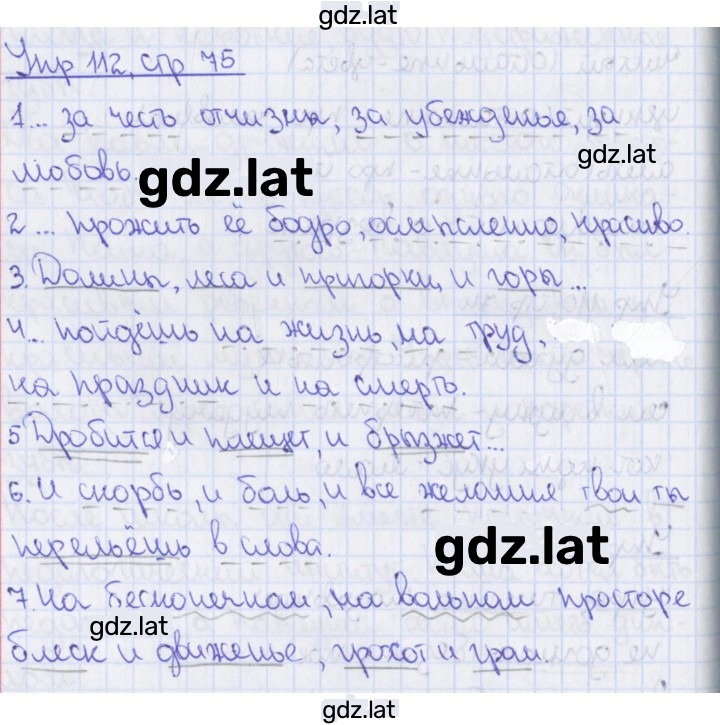 gdz.lat
Упр 112, стр 75
1... за честь отчизны, за убежденье, за
gdz.lat
любовь.
gdz.lat
2 ... прожить её бодро, осмысленно, красиво.
3. Долины, леса и пригорки, и горы...
4... пойдёшь на жизнь, на труд,
на праздник и на смерть.
5 Дробится и плещет, и брызжет...
6. И скорбь, и боль, и все желания твои ты
перельёшь в слова.
gdz.lat
7. На бесконечном, на вольном просторе
gdz.lat
блеск и движенье, грохот и гром.
gdz.lat